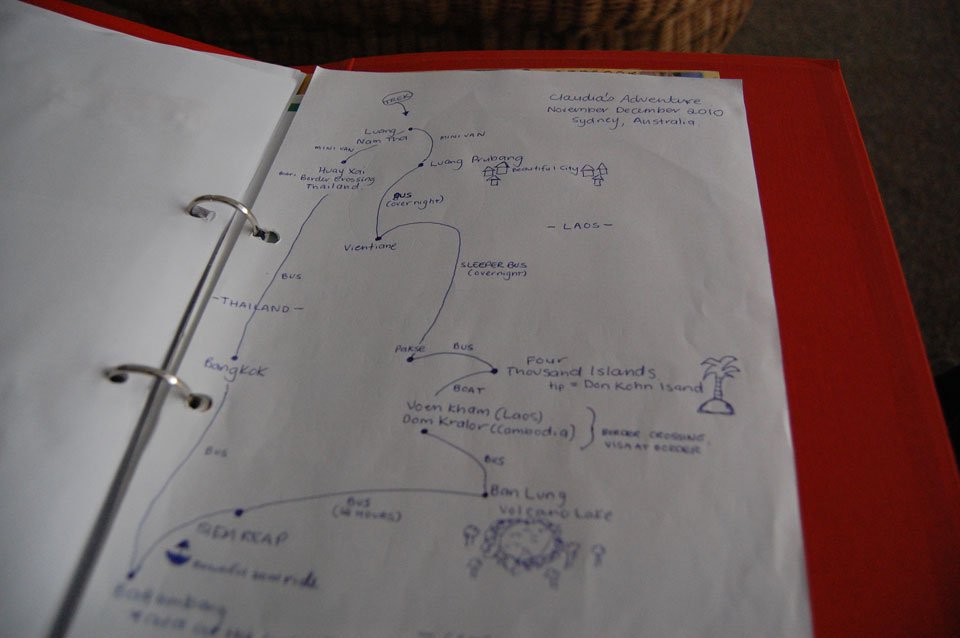 TREK
Claudia's Adventure
November December 2010
Sydney, Australia.
Luang
Nam Tha
MINI VAN
MINI VAN
Huay Xai
Border Crossing
Thailand
Luang Prubang
Beautiful City
BUS
(overnight)
- LAOS -
Vientiane
SLEEPER BUS
(overnight)
BUS
- THAILAND -
Pakse
BUS
Bangkok
Four
Thousand Islands
tip = Don Kohn Isand
BOAT
Voen Kham (Laos)
Dom Kralor (Cambodia)
BORDER CROSSING,
VISA AT BORDER
BUS
BUS
Ban Lung
Volcano Lake
BUS
SIEM REAP
Beautiful boat ride